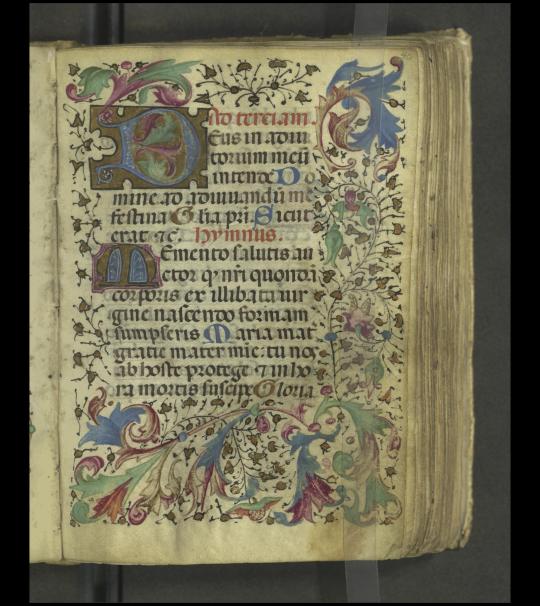 Ad terciam.
Deus in adiu
torium meū
intende Do
mine ad adiuuandū me
festina Glia pri Sicut
erat ⁊c. hymnus.
Memento salutis au
ctor q nri quondā
corporis ex illibata uir
gine nascendo formam
sumpseris Maria mat
gratie mater mie: tu nos
ab hoste protege ⁊ in ho
ra mortis suscipe Gloria